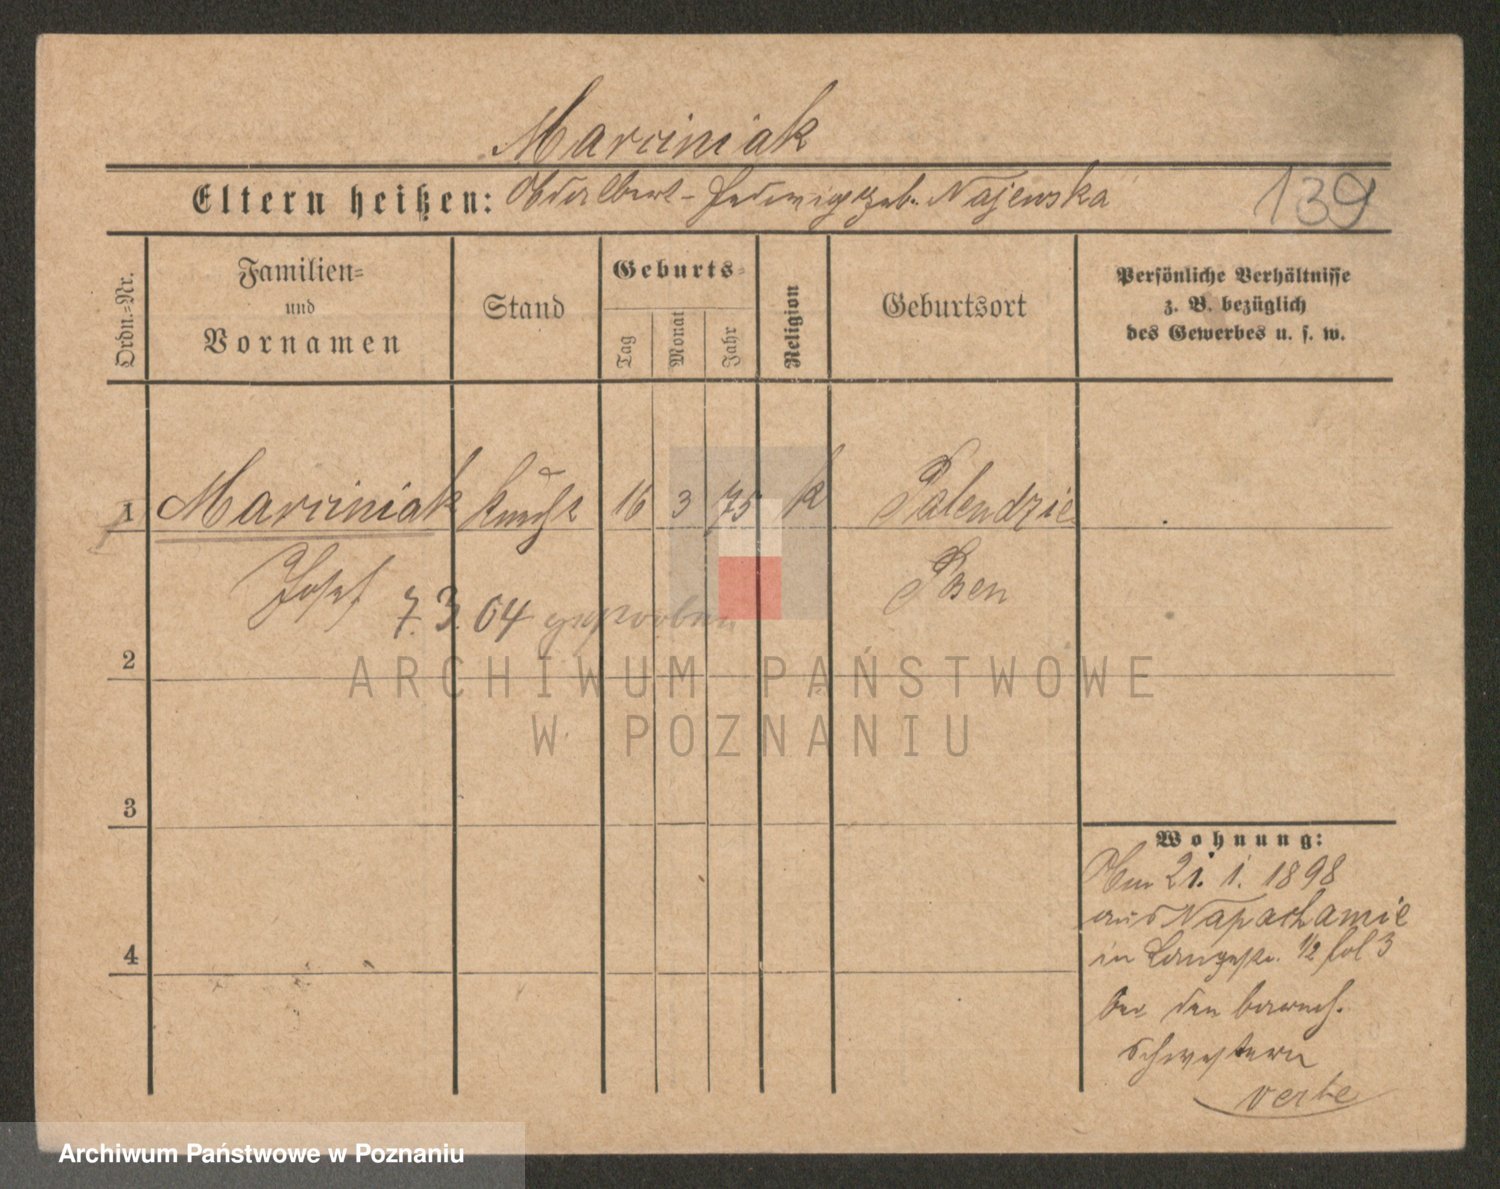 Marciniak
Eltern heißen: Adalbert – Hedwig geb. Najewska
139
Ordn.=Nr.
Familien=
und
Vornamen
Stand
Geburts=
Tag
Monat
Jahr
Religion
Geburtsort
Persönliche Verhältnisse
z. B. bezüglich
des Gewerbes u. s. w.
1 Marciniak Knecht 16 3 75 K Palendzie
Josef Posen
7.3.04 gestorben
2
ARCHIWUM PAŃSTWOWE
W POZNANIU
3
4
Wohnung:
Am 21. 1. 1898
aus Napachanie
in Langestr. 1/2 fol 3
bei den barmh.
Schwestern
Archiwum Państwowe w Poznaniu